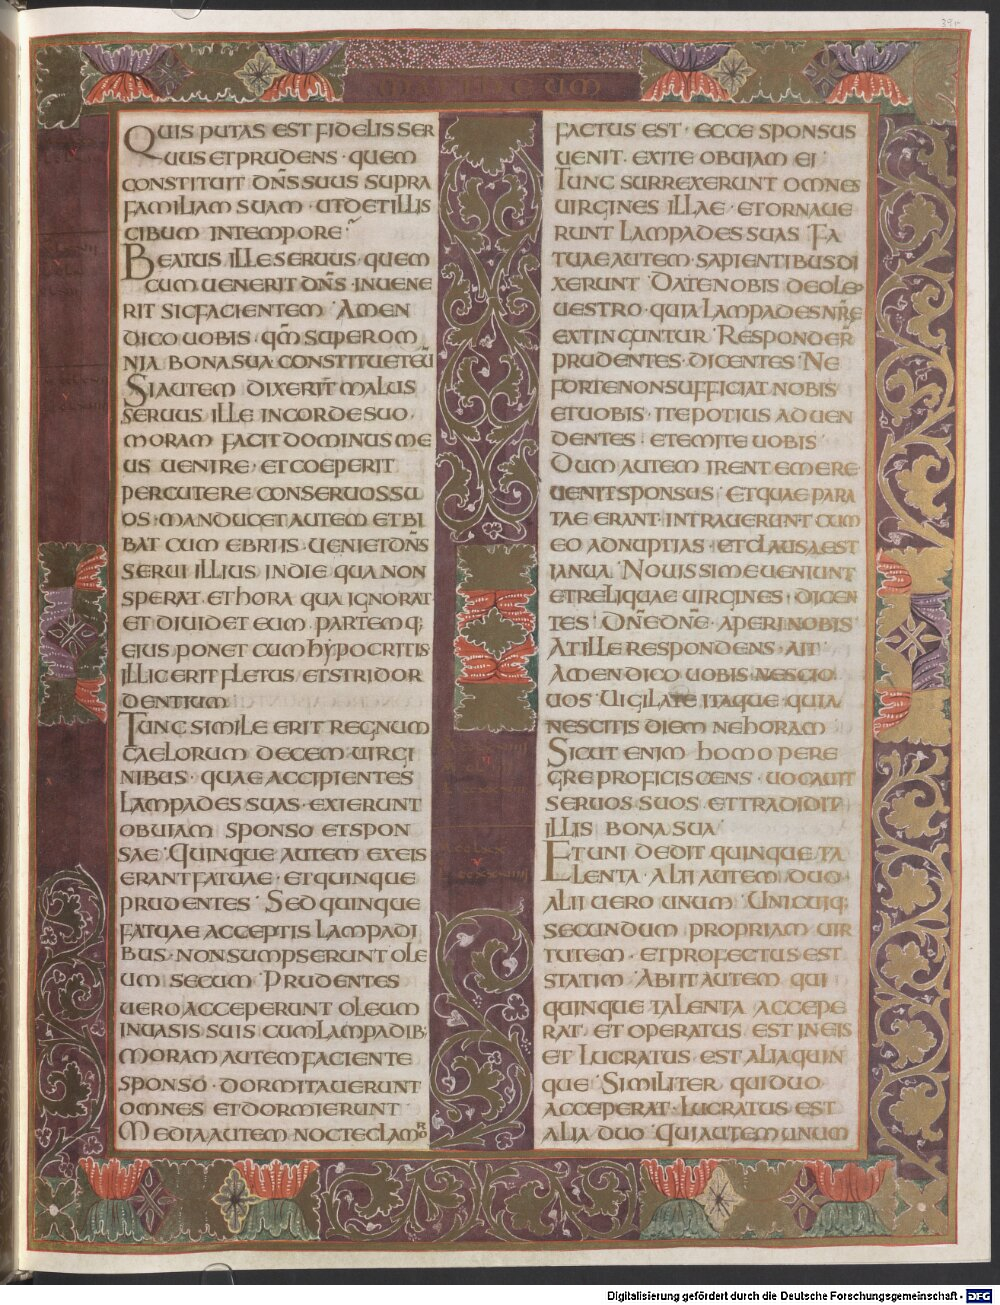 39r
MATTHEUM
QUIS PUTAS EST FIDELIS SER
UUS ET PRUDENS · QUEM
CONSTITUIT DN̄S SUUS SUPRA
FAMILIAM SUAM · UT DET ILLIS
CIBUM IN TEMPORE
BEATUS ILLE SERUUS · QUEM
CUM UENERIT DN̄S · INUENE
RIT SIC FACIENTEM · AMEN
DICO UOBIS · QM̄ SUPER OM
NIA BONA SUA CONSTITUET EŪ
SI AUTEM DIXERIT̄ MALUS
SERUUS ILLE IN CORDE SUO ·
MORAM FACIT DOMINUS ME
US UENIRE · ET COEPERIT
PERCUTERE CONSERUOS SU
OS · MANDUCET AUTEM ET BI
BAT CUM EBRIIS · UENIET DN̄S
SERUI ILLIUS IN DIE QUA NON
SPERAT · ET HORA QUA IGNORAT
ET DIUIDET EUM · PARTEMQ;
EIUS PONET CUM HYPOCRITIS ·
ILLIC ERIT FLETUS · ET STRIDOR
DENTIUM
TUNC SIMILE ERIT REGNUM
CAELORUM DECEM UIRGI
NIBUS · QUAE ACCIPIENTES
LAMPADES SUAS · EXIERUNT
OBUIAM SPONSO ET SPON
SAE · QUINQUE AUTEM EX EIS
ERANT FATUAE · ET QUINQUE
PRUDENTES · SED QUINQUE
FATUAE ACCEPTIS LAMPADI
BUS · NON SUMPSERUNT OLE
UM SECUM · PRUDENTES
UERO ACCEPERUNT OLEUM
IN UASIS SUIS CUM LAMPADIB;
MORAM AUTEM FACIENTE
SPONSO · DORMITAUERUNT
OMNES ET DORMIERUNT
MEDIA AUTEM NOCTE CLAMOR
FACTUS EST · ECCE SPONSUS
UENIT · EXITE OBUIAM EI ·
TUNC SURREXERUNT OMNES
UIRGINES ILLAE · ET ORNAUE
RUNT LAMPADES SUAS · FA
TUAE AUTEM · SAPIENTIBUS DI
XERUNT · DATE NOBIS DE OLEO
UESTRO · QUIA LAMPADES NR̄E
EXTINGUNTUR · RESPONDER̄
PRUDENTES · DICENTES · NE
FORTE NON SUFFICIAT NOBIS
ET UOBIS · ITE POTIUS AD UEN
DENTES · ET EMITE UOBIS ·
DUM AUTEM IRENT EMERE ·
UENIT SPONSUS · ET QUAE PARA
TAE ERANT · INTRAUERUNT CUM
EO AD NUPTIAS · ET CLAUSA EST
IANUA · NOUISSIME UENIUNT
ET RELIQUAE UIRGINES · DICEN
TES · DN̄E DN̄E · APERI NOBIS ·
AT ILLE RESPONDENS · AIT
AMEN DICO UOBIS NESCIO
UOS · UIGILATE ITAQUE · QUIA
NESCITIS DIEM NE HORAM
SICUT ENIM HOMO PERE
GRE PROFICISCENS · UOCAUIT
SERUOS SUOS · ET TRADIDIT
ILLIS BONA SUA ·
ET UNI DEDIT QUINQUE TA
LENTA · ALII AUTEM DUO ·
ALII UERO UNUM · UNICUIQ;
SECUNDUM PROPRIAM UIR
TUTEM · ET PROFECTUS EST
STATIM · ABIIT AUTEM QUI
QUINQUE TALENTA ACCEPE
RAT · ET OPERATUS EST IN EIS
ET LUCRATUS · EST ALIA QUIN
QUE · SIMILITER QUI DUO
ACCEPERAT · LUCRATUS EST
ALIA DUO · QUI AUTEM UNUM
Digitalisierung gefördert durch die Deutsche Forschungsgemeinschaft - DFG